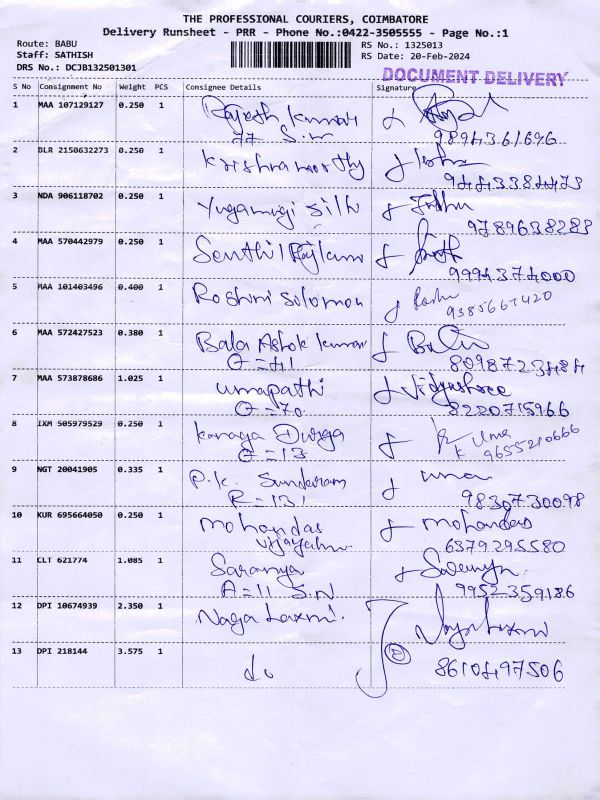 THE PROFESSIONAL COURIERS, COIMBATORE
Delivery Runsheet - PRR - Phone No.:0422-3505555 - Page No.:1
Route: BABU RS No.: 1325013
Staff: SATHISH RS Date: 20-Feb-2024
DRS No.: DCJB132501301
DOCUMENT DELIVERY
S No Consignment No Weight PCS Consignee Details Signature
1 MAA 107129127 0.250 1 Rajesh kumar
77 S.N 9894361696
2 BLR 2150632273 0.250 1 Krishnamorthy
94443384473
3 NDA 906118702 0.250 1 Silk
9789638283
4 MAA 570442979 0.250 1 Senthil Rajkumar
9994374000
5 MAA 101403496 0.400 1 Roshini Solomon
9385661420
6 MAA 572427523 0.380 1 Bala Ashok kumar
O=41 8098723484
7 MAA 573878686 1.025 1 umapathi Vidyashree
O=70 8220715966
8 IXM 505979529 0.250 1 kanaga Durga K Uma
O=13 9655210666
9 NGT 20041905 0.335 1 P.K. Sundaram uma
R=131 9830730098
10 KUR 695664050 0.250 1 mohandas mohandas
6379295580
11 CLT 621774 1.085 1 Saranya
A=11 S.N 9952359186
12 DPI 10674939 2.350 1 Naga Laxmi. Naga Laxmi
13 DPI 218144 3.575 1 do 8610497506